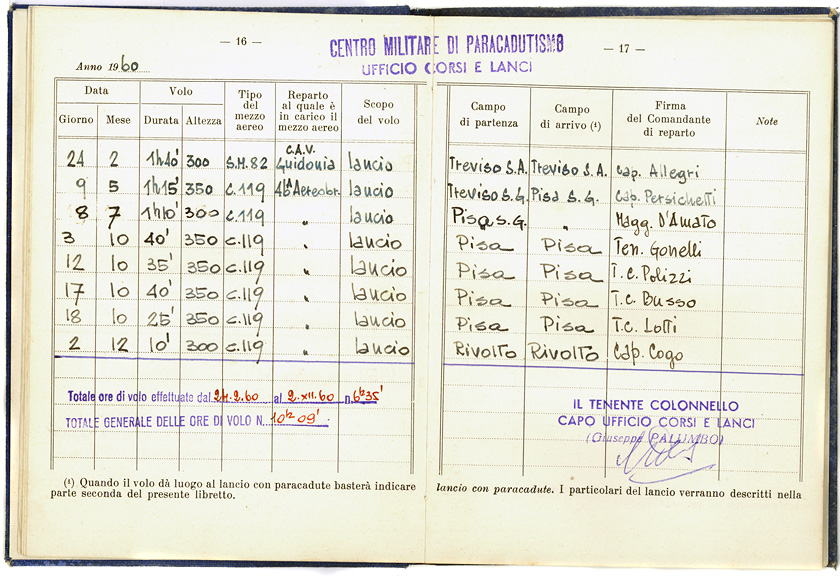 — 16 —
CENTRO MILITARE DI PARACADUTISMO
— 17 —
UFFICIO CORSI E LANCI
Anno 1960
Data Volo Tipo del mezzo aereo Reparto al quale è in carico il mezzo aereo Scopo del volo Campo di partenza Campo di arrivo (¹) Firma del Comandante di reparto Note
Giorno Mese Durata Altezza
24 2 1h40' 300 S.M.82 C.A.V. Guidonia lancio Treviso S.A. Treviso S.A. Cap. Allegri
9 5 1h15' 350 C.119 46ª Aereobr. lancio Treviso S.G. Pisa S.G. Cap. Persichetti
8 7 1h10' 300 C.119 " lancio Pisa S.G. " Magg. D'Amato
3 10 40' 350 C.119 " lancio Pisa Pisa Ten. Gonelli
12 10 35' 350 C.119 " lancio Pisa Pisa T.C. Polizzi
17 10 40' 350 C.119 " lancio Pisa Pisa T.C. Busso
18 10 25' 350 C.119 " lancio Pisa Pisa T.C. Lotti
2 12 10' 300 C.119 " lancio Rivolto Rivolto Cap. Cogo
Totale ore di volo effettuate dal 24.2.60 al 2.XII.60 n. 6h35'
TOTALE GENERALE DELLE ORE DI VOLO N. 10h09'
IL TENENTE COLONNELLO
CAPO UFFICIO CORSI E LANCI
(Giuseppe PALUMBO)
(¹) Quando il volo dà luogo al lancio con paracadute basterà indicare lancio con paracadute. I particolari del lancio verranno descritti nella
parte seconda del presente libretto.